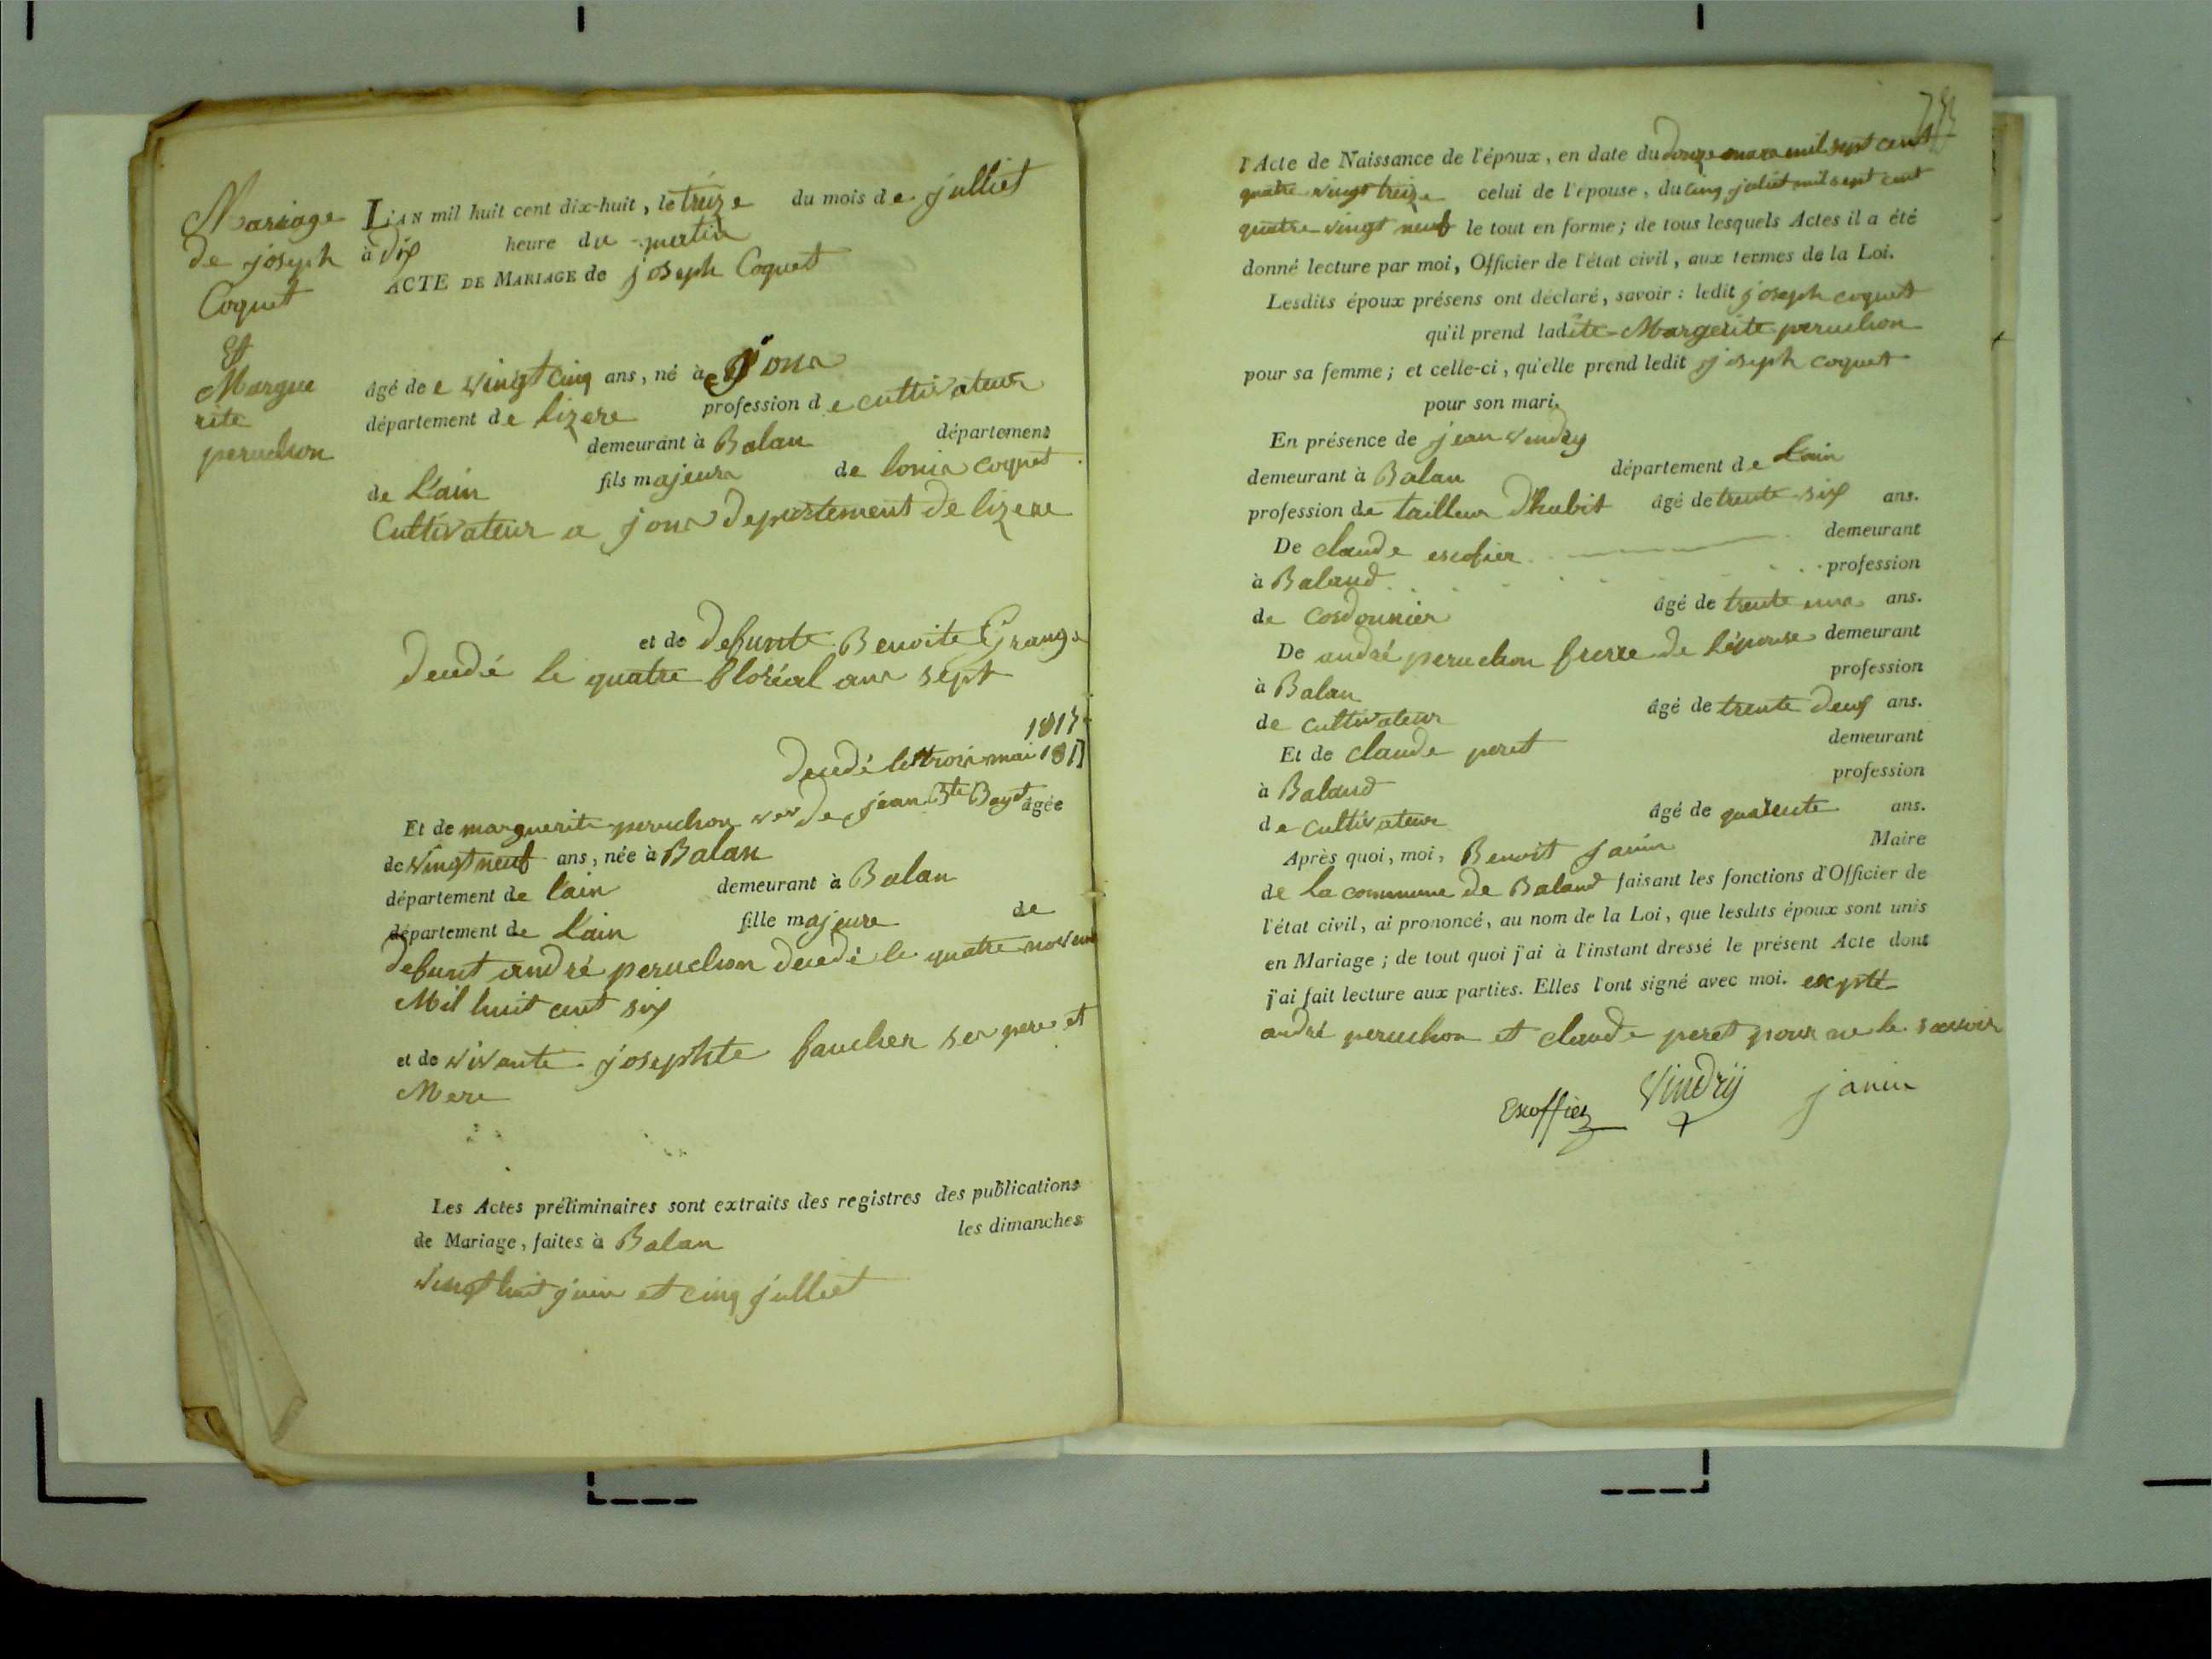 Mariage
de joseph
Coquet
Et
Margue
rite
peruchon
L'AN mil huit cent dix-huit, le treize du mois de julliet
à dix heure du matin
ACTE DE MARIAGE de joseph Coquet
âgé de e vingt cinq ans, né à jona
département de lizere profession de cultivateur
demeurant à Balan département
de L'ain fils majeur de louis coquet
Cultivateur a jona departement de lizere
et de defunte Benoite Grange
decedé le quatre floréal an sept
1817
decedé le trois mai 1817
Et de marguerite peruchon vev de jean Bte Bayet âgée
de vingt neuf ans, née à Balan
département de l'ain demeurant à Balan
département de L'ain fille majeure de
defunt andré peruchon decedé le quatre novem
Mil huit cent six
et de vivante josephte faucher ses pere et
Mere
Les Actes préliminaires sont extraits des registres des publications
de Mariage, faites à Balan les dimanches
vingt huit juin et cinq julliet
l'Acte de Naissance de l'époux, en date du douze mars mil sept cent
quatre vingt treize celui de l'épouse, du cinq juliet mil sept cent
quatre-vingt neuf le tout en forme; de tous lesquels Actes il a été
donné lecture par moi, Officier de l'état civil, aux termes de la Loi.
Lesdits époux présens ont déclaré, savoir: ledit joseph coquet
qu'il prend ladite Margerite peruchon
pour sa femme; et celle-ci, qu'elle prend ledit joseph coquet
pour son mari.
En présence de jean vindry
demeurant à Balan département de L'ain
profession de tailleur d'habit âgé de trente six ans.
De claude escofier demeurant
à Baland profession
de cordonnier âgé de trente un ans.
De andré peruchon frere de l'épouse demeurant
à Balan profession
de cultivateur âgé de trente deux ans.
Et de claude peret demeurant
à Baland profession
de cultivateur âgé de quarente ans.
Après quoi, moi, Benoit janin Maire
de La commune de Baland faisant les fonctions d'Officier de
l'état civil, ai prononcé, au nom de la Loi, que lesdits époux sont unis
en Mariage; de tout quoi j'ai à l'instant dressé le présent Acte dont
j'ai fait lecture aux parties. Elles l'ont signé avec moi. excepté
andré peruchon et claude peret pour ne le savoir
Escoffier Vindry janin